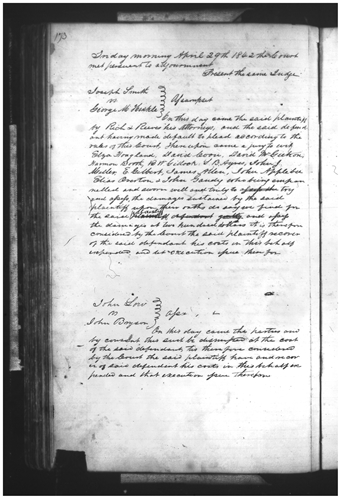 173
Friday morning April 29th 1842 the Court
met pursuant to adjournment
Present the same Judge
Joseph Smith
vs Assumpsit
George M
On this day came the said plaintiff
by Rich & Reeves his Attorneys, and the said defend
ant having made default to plead according to the
rules of this Court. Thereupon came a jury to wit
Elza Hoagland, David Coon, David
Simon Booth, B W S B Ayres, John
Miller E Gilbert, James Allen, John Applebee
Elias Overton & John Gandy who being empan
nelled and sworn well and truly to try
and assess the damages sustained by the said
plaintiff upon their oaths do say we find for
the said plaintiff and assess
the damages at two hundred dollars It is therefore
considered by the Court the said plaintiff recover
of the said defendant his costs in this behalf
expended, and let execution issue therefor
John Low
vs Ass
John Bryson
On this day came the parties and
by consent this suit be dismissed at the cost
of the said defendant, It is therefore considered
by the Court the said plaintiff have and recov
er of said defendant his costs in this behalf ex
pended and that execution issue therefor